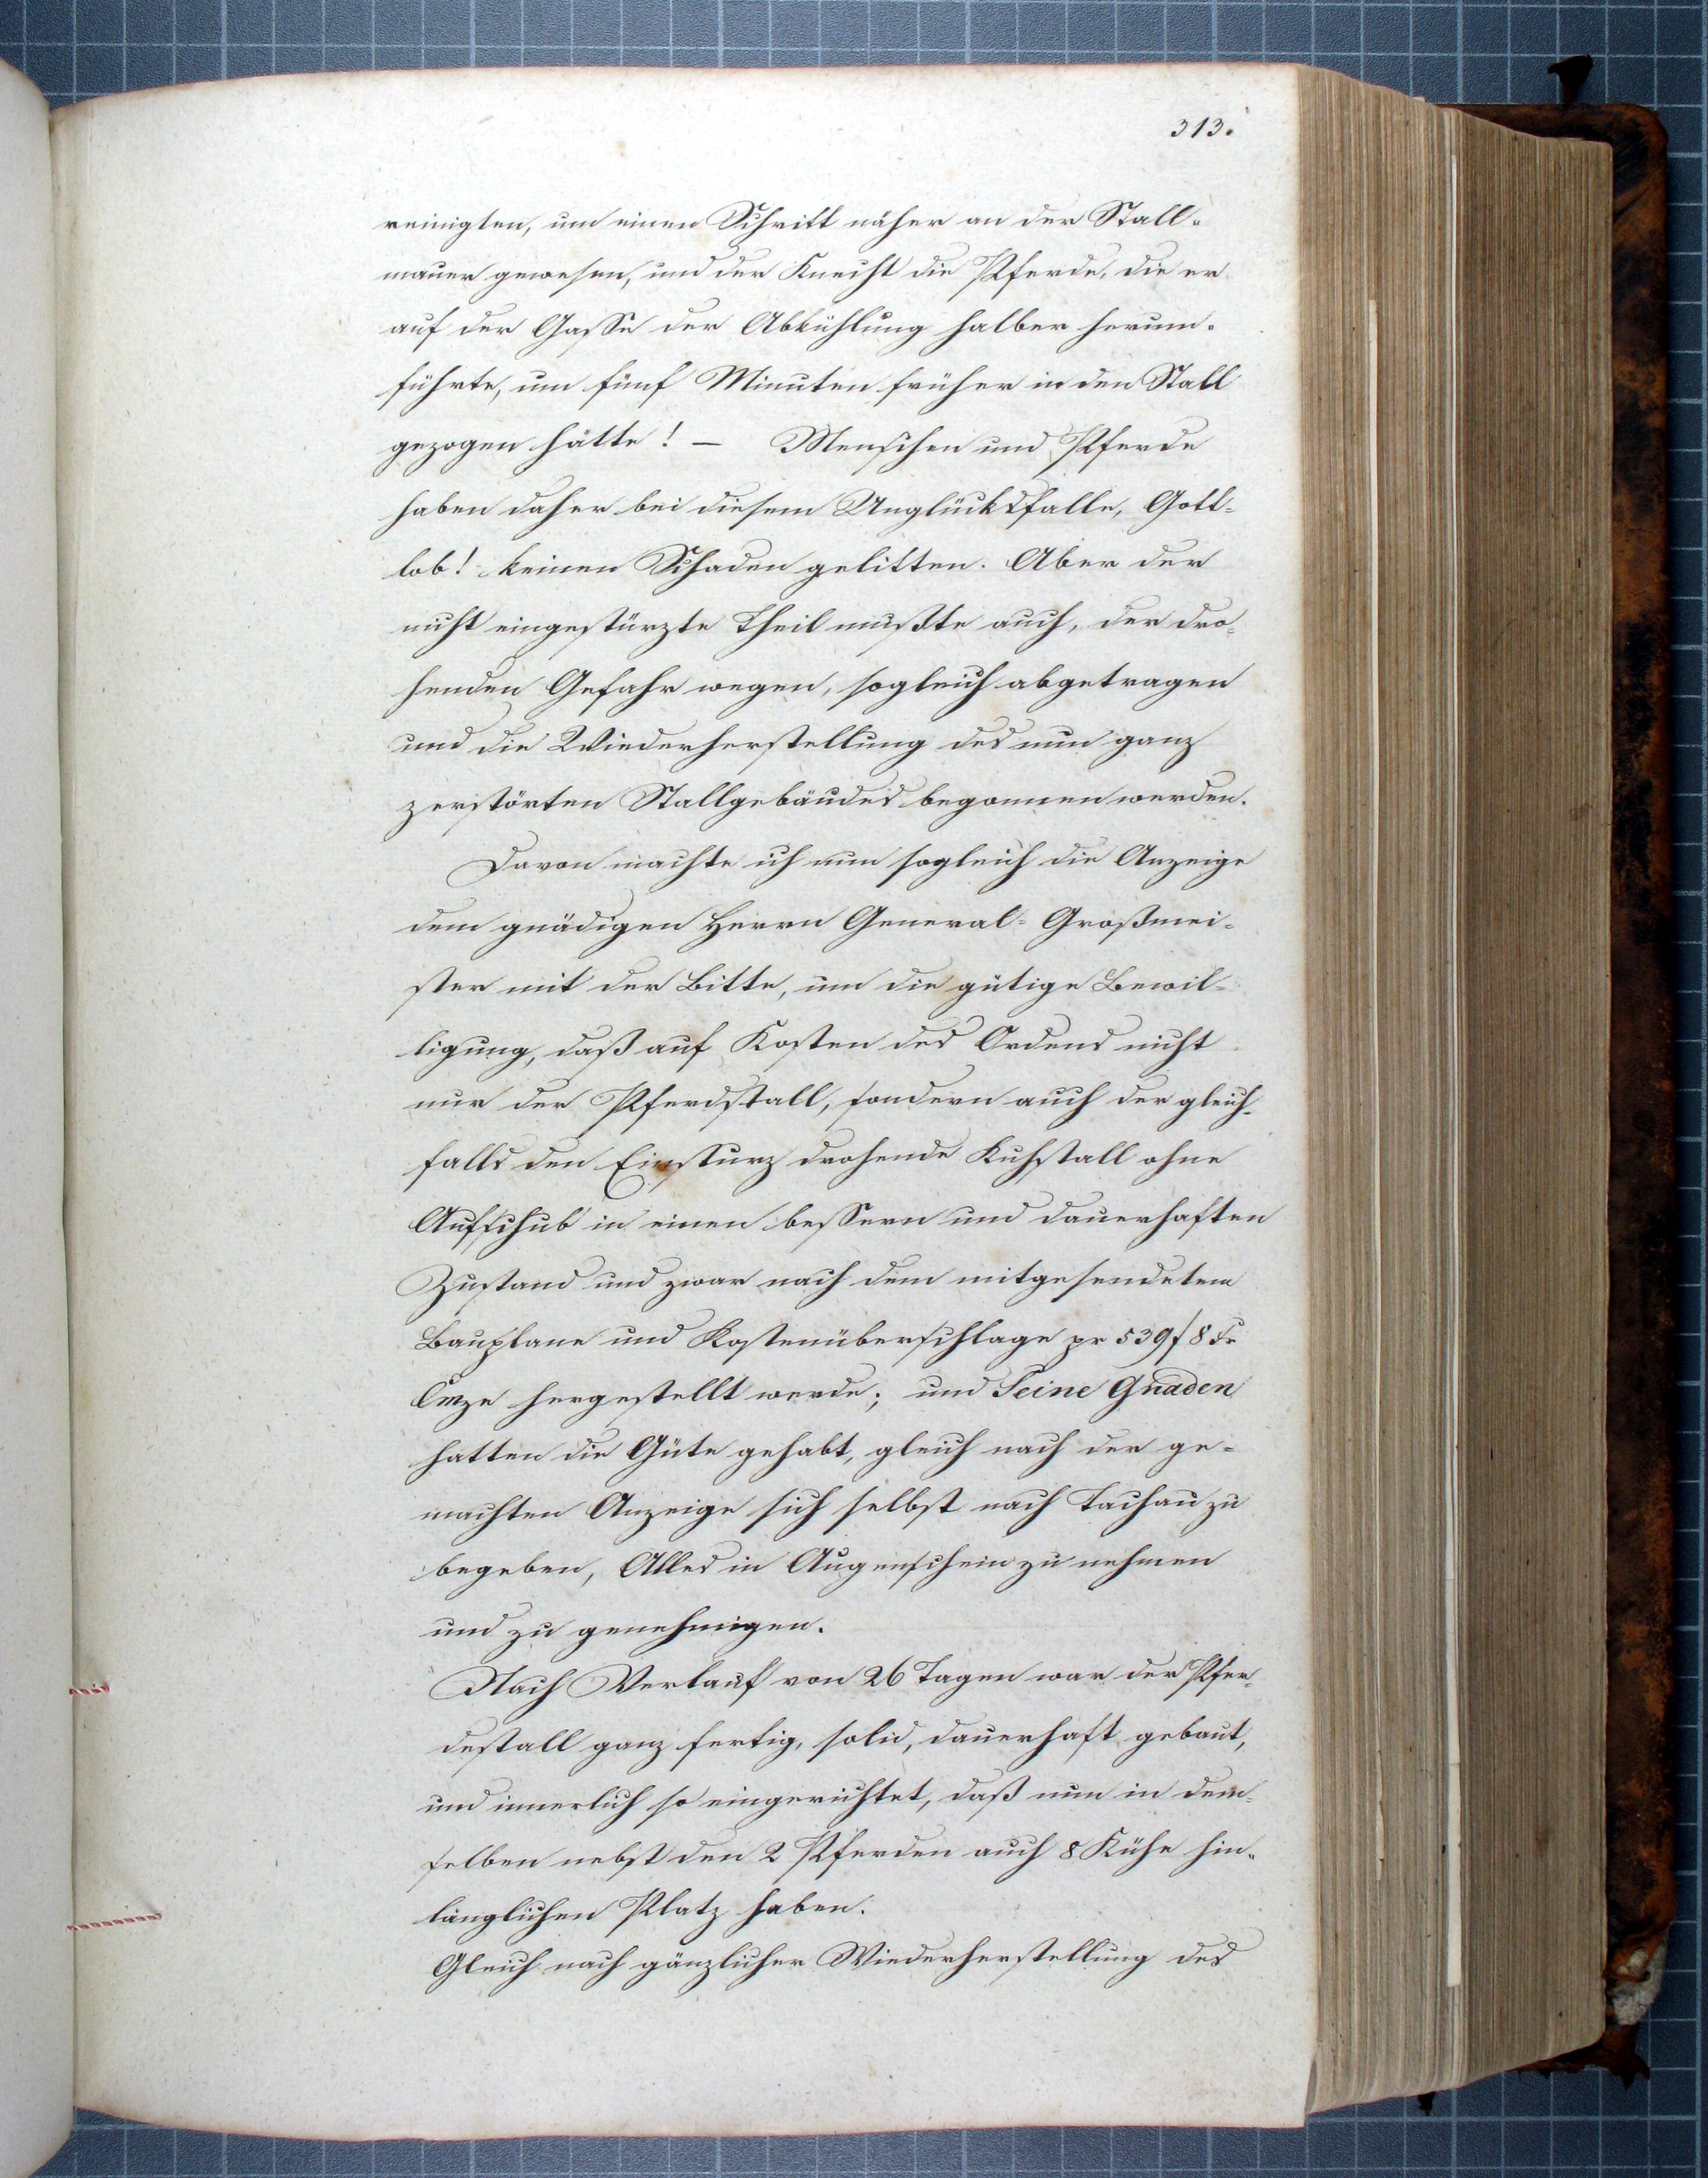 313.
reinigten, um einen Schritt näher an der Stall-
mauer gewesen, und der Knecht die Pferde, die er
auf der Gasse der Abkühlung halber herum-
führte, um fünf Minuten früher in den Stall
gezogen hätte! — Menschen und Pferde
haben daher bei diesem Unglücksfalle, Gott-
lob! keinen Schaden gelitten. Aber der
nicht eingestürzte Theil mußte auch, der dro-
henden Gefahr wegen, sogleich abgetragen
und die Wiederherstellung des nun ganz
zerstörten Stallgebäudes begonnen werden.
Davon machte ich nun sogleich die Anzeige
dem gnädigen Herrn General-Großmei-
ster mit der Bitte, um die gütige Bewil-
ligung, daß auf Kosten des Ordens nicht
nur der Pferdstall, sondern auch der gleich-
falls den Einsturz drohende Kuhstall ohne
Aufschub in einen bessern und dauerhaften
Zustand und zwar nach dem mitgesendetem
Bauplane und Kostenüberschlage pr 539 f 8 Xr
hergestellt werde; und Seine Gnaden
hatten die Güte gehabt, gleich nach der ge-
machten Anzeige sich selbst nach Tachau zu
begeben, Alles in Augenschein zu nehmen
und zu genehmigen.
Nach Verlauf von 26 Tagen war der Pfer-
destall ganz fertig, solid, dauerhaft gebaut,
und innerlich so eingerichtet, daß nun in dem-
selben nebst den 2 Pferden auch 8 Kühe hin-
länglichen Platz haben.
Gleich nach gänzlicher Wiederherstellung des